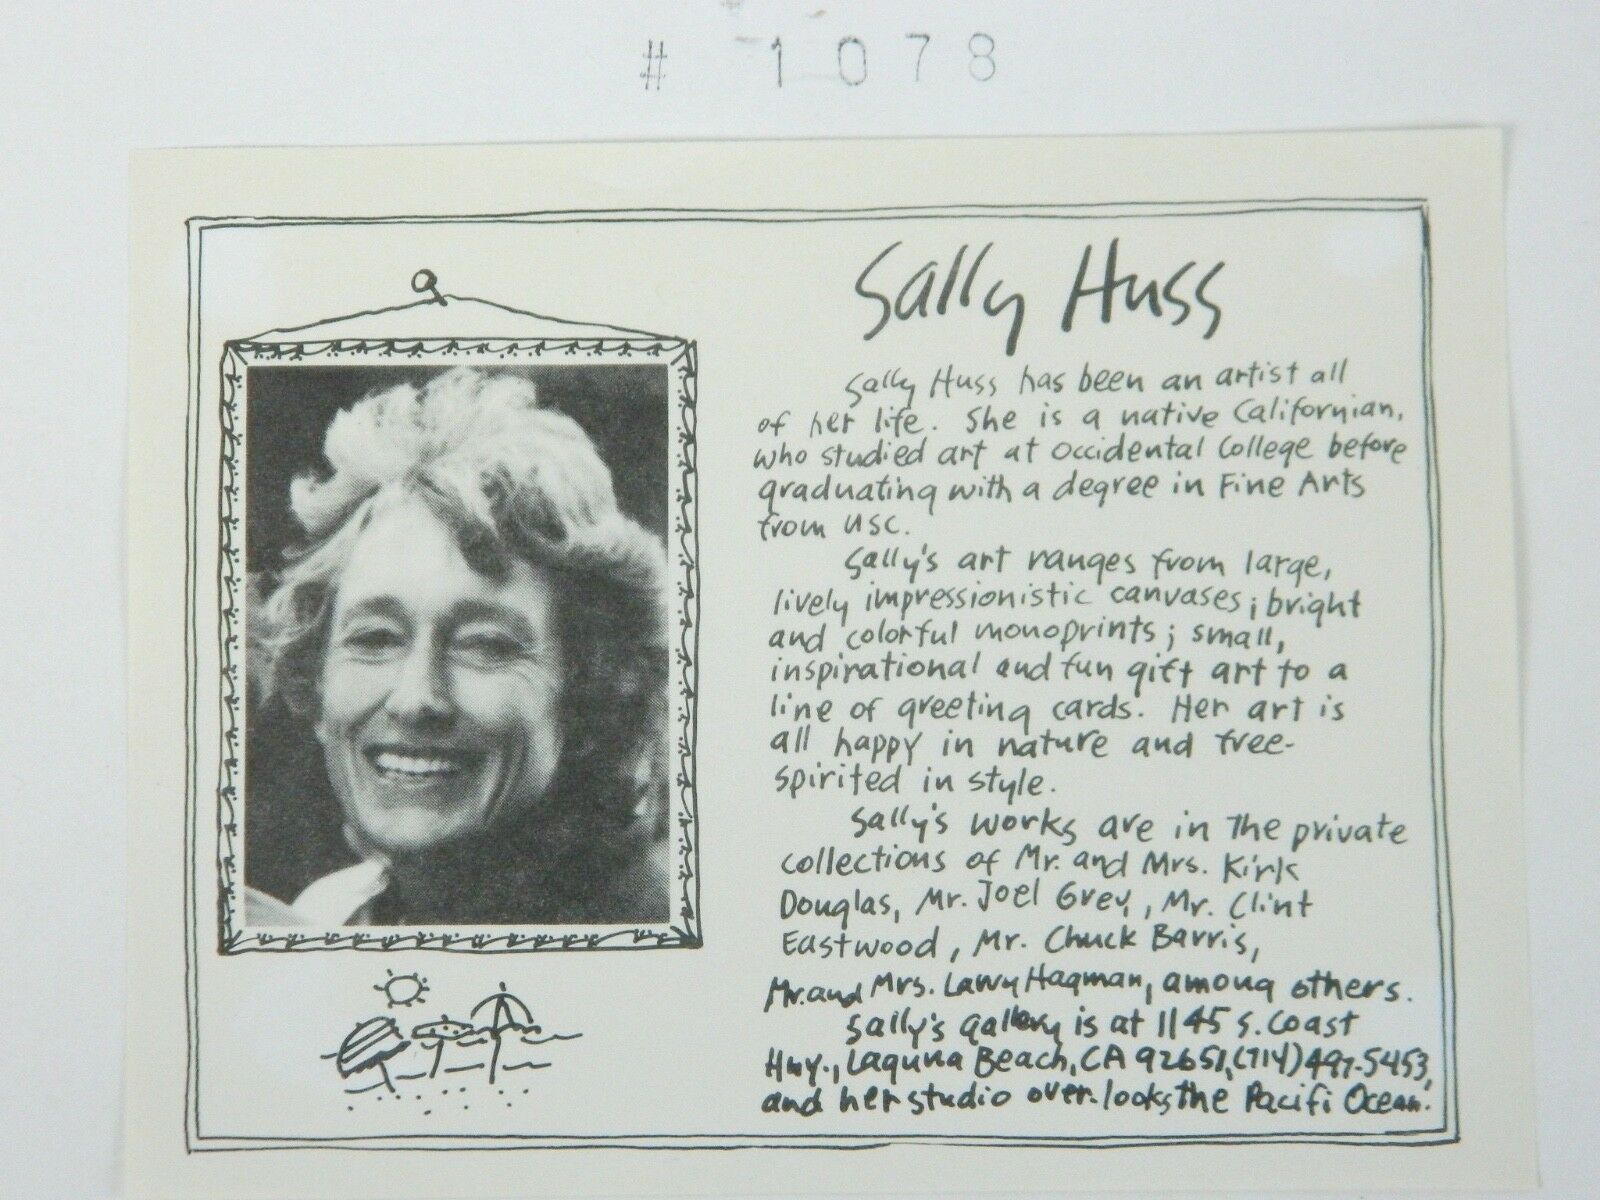 # 1078
Sally Huss
Sally Huss has been an artist all
of her life. She is a native Californian,
who studied art at Occidental College before
graduating with a degree in Fine Arts
from USC.
Sally's art ranges from large,
lively impressionistic canvases; bright
and colorful monoprints; small,
inspirational and fun gift art to a
line of greeting cards. Her art is
all happy in nature and free-
spirited in style.
Sally's works are in the private
collections of Mr. and Mrs. Kirk
Douglas, Mr. Joel Grey, Mr. Clint
Eastwood, Mr. Chuck Barris,
Mr. and Mrs. Larry Hagman, among others.
Sally's gallery is at 1145 S. Coast
Hwy., Laguna Beach, CA 92651, (714) 497-5453,
and her studio over-looks the Pacific Ocean.